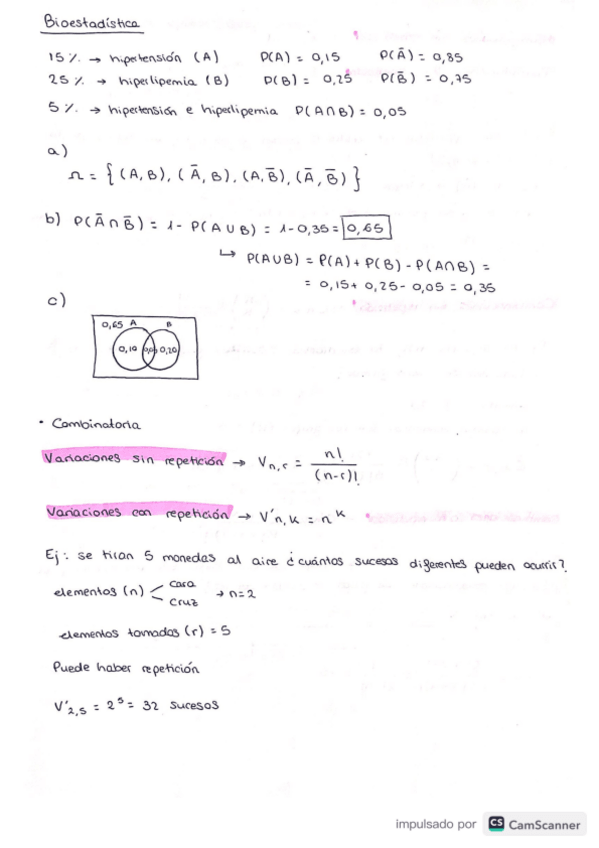 Bioestadística
15 %. → hipertensión (A) P(A) = 0,15 P(Ā) = 0,85
25 %. → hiperlipemia (B) P(B) = 0,25 P(B̄) = 0,75
5 %. → hipertensión e hiperlipemia P(A∩B) = 0,05
a)
Ω = { (A,B), (Ā,B), (A,B̄), (Ā,B̄) }
b) P(Ā∩B̄) = 1 - P(A∪B) = 1 - 0,35 = 0,65
↳ P(A∪B) = P(A) + P(B) - P(A∩B) =
= 0,15 + 0,25 - 0,05 = 0,35
c)
0,65 A B
0,10 0,05 0,20
• Combinatoria
Variaciones sin repetición → Vn,r = n! / (n-r)!
Variaciones con repetición → V'n,k = n^k
Ej: se tiran 5 monedas al aire ¿cuántos sucesos diferentes pueden ocurrir?
elementos (n) < cara cruz → n=2
elementos tomados (r) = 5
Puede haber repetición
V'2,5 = 2^5 = 32 sucesos
impulsado por CS CamScanner